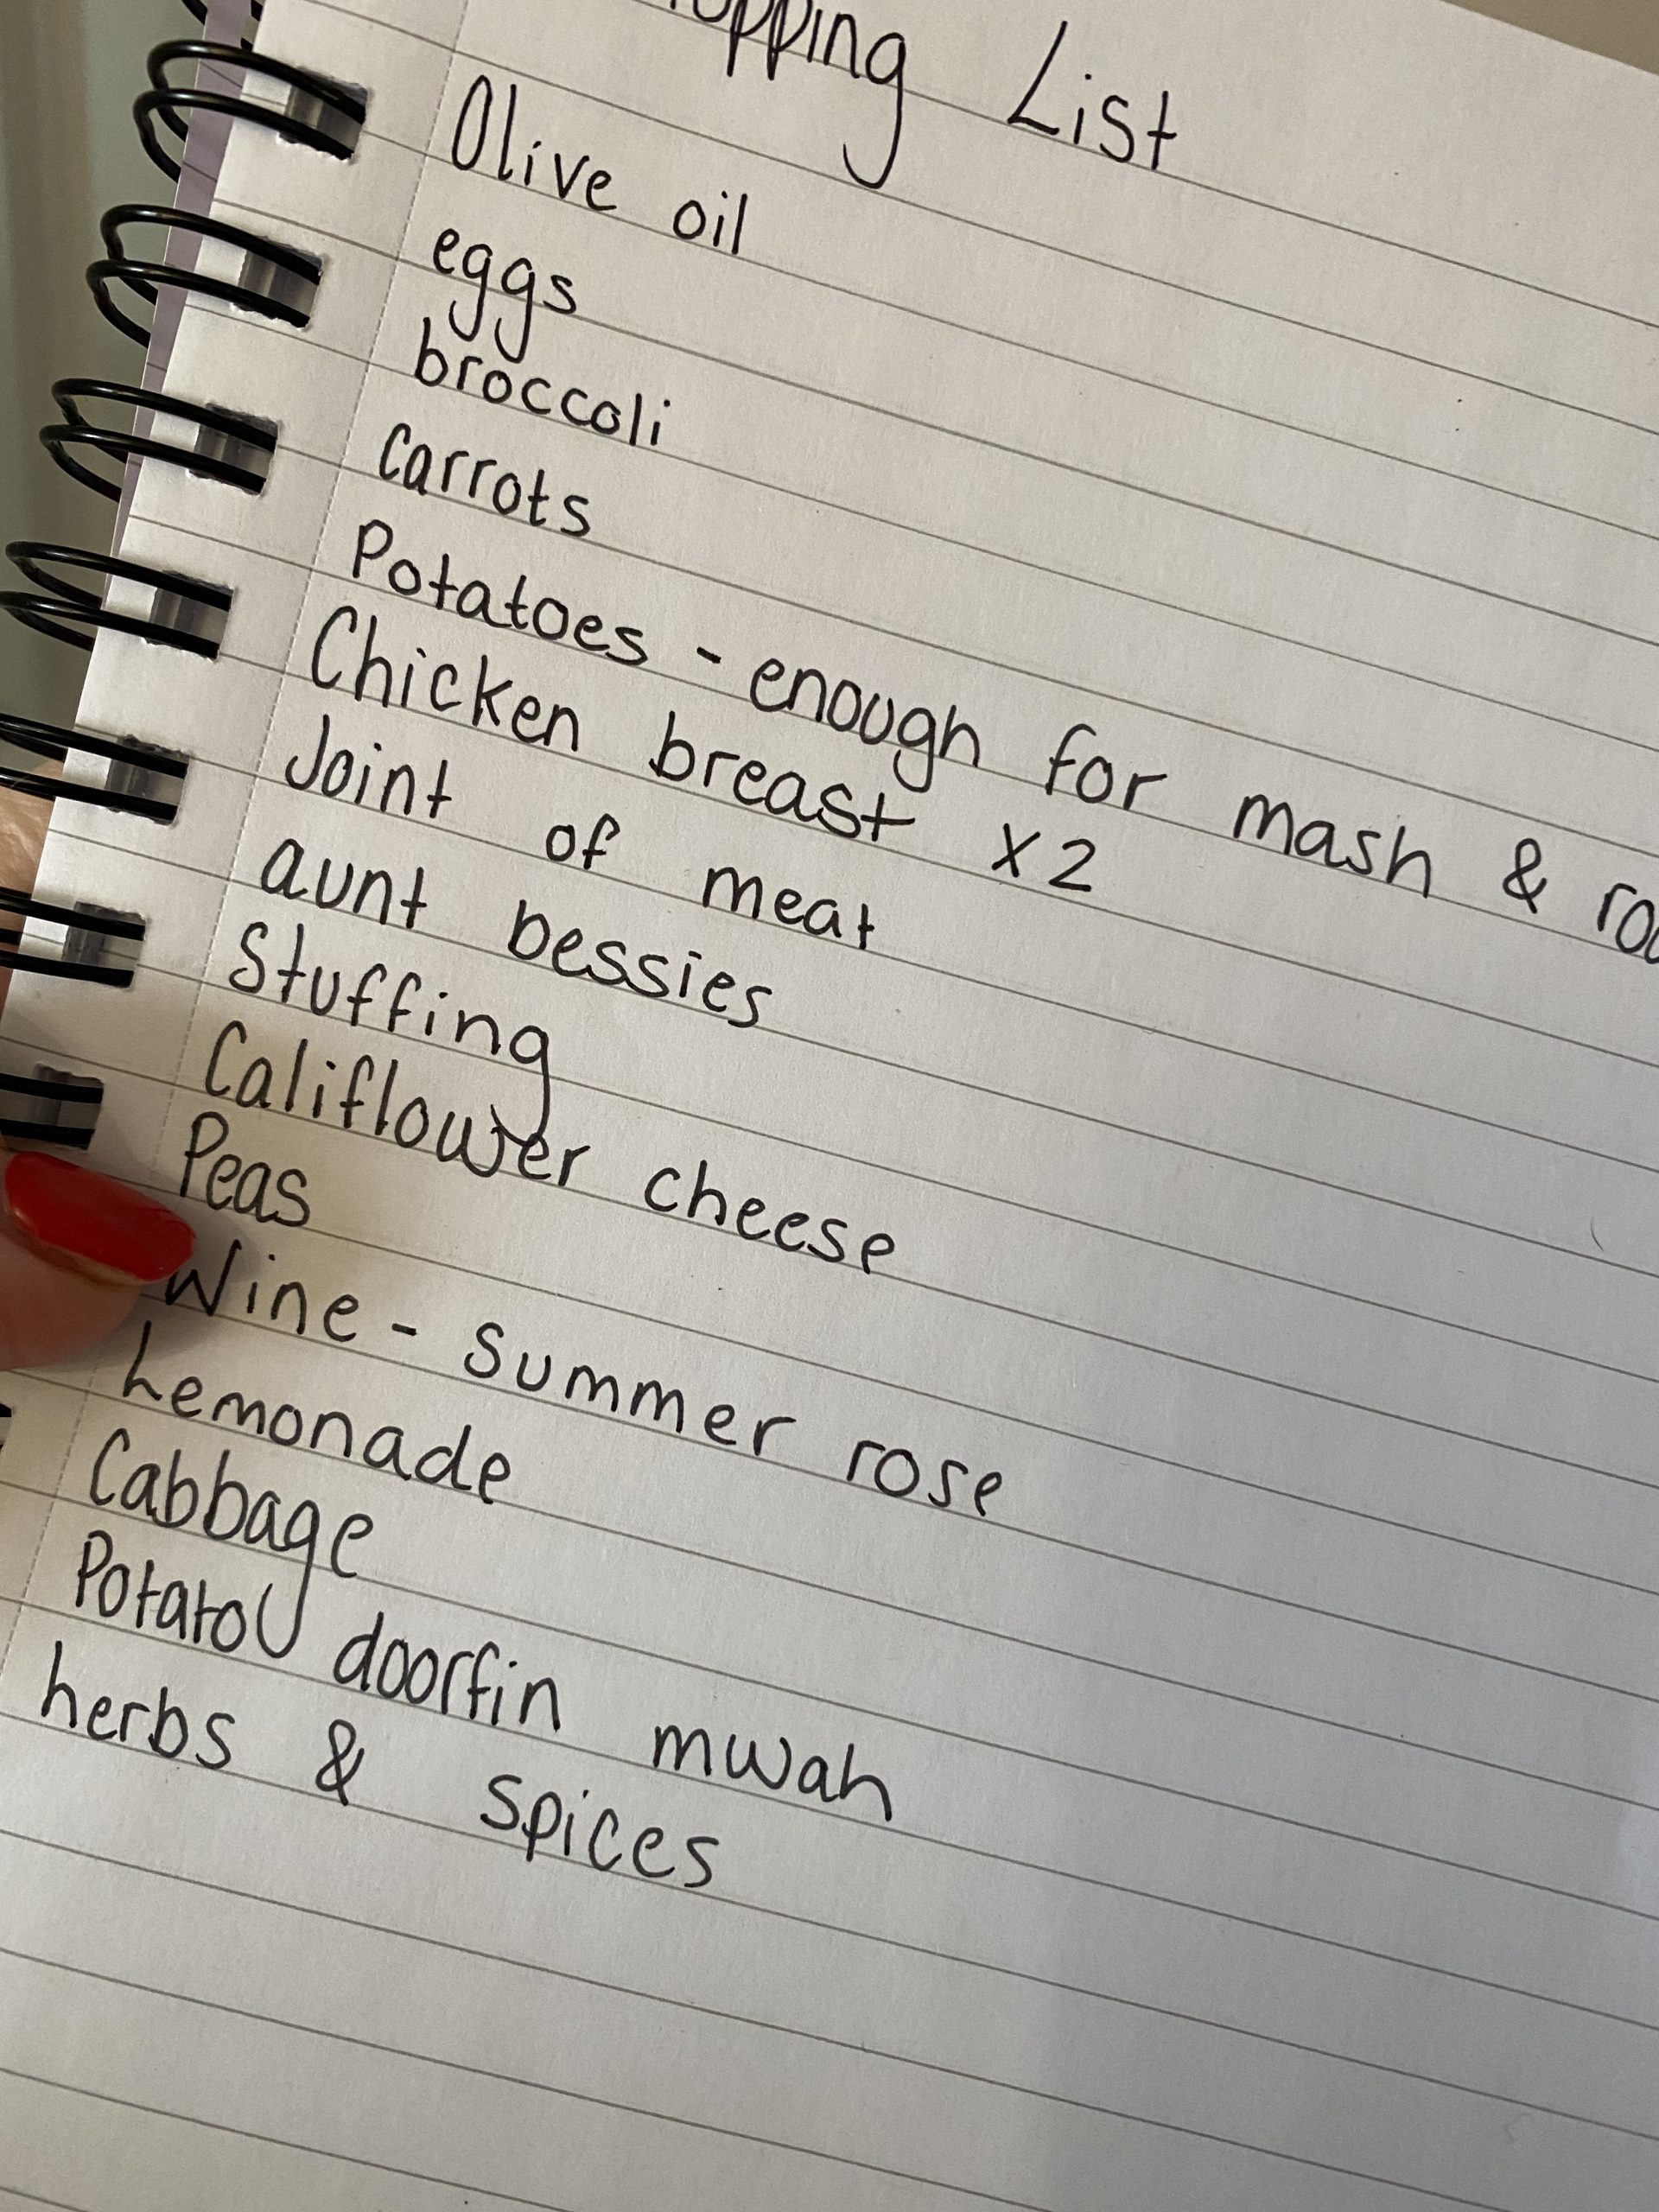 opping List
Olive oil
eggs
broccoli
carrots
Potatoes - enough for mash & roa
Chicken breast x2
Joint of meat
aunt bessies
Stuffing
Califlower cheese
Peas
Wine - summer rose
Lemonade
Cabbage
Potato doorfin mwah
herbs & spices